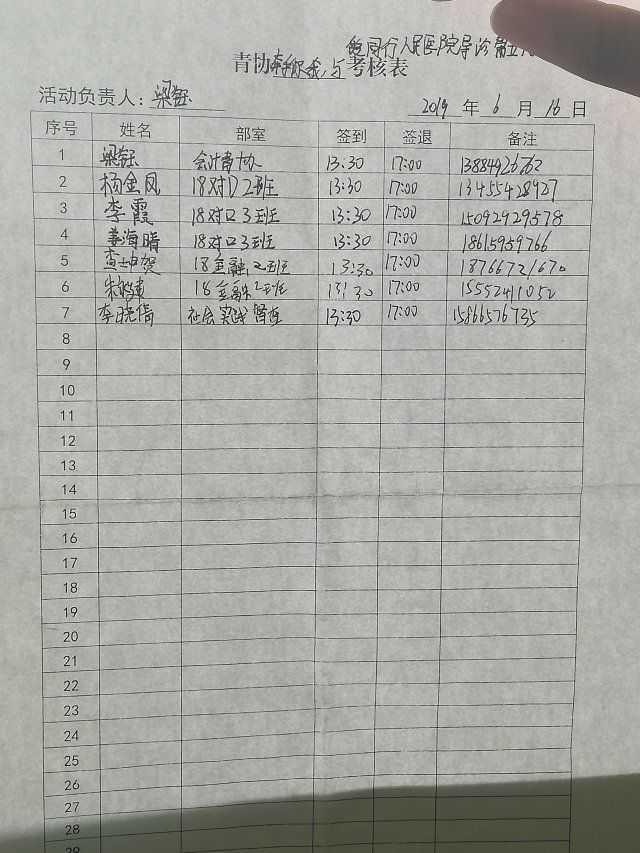 同行人民医院导诊第五
青协 考核表
活动负责人：梁钰
2019 年 6 月 16 日
序号 姓名 部室 签到 签退 备注
1 梁钰 会计青协 13:30 17:00 13884926762
2 杨金凤 18对口2班 13:30 17:00 13455428927
3 李霞 18对口3班 13:30 17:00 15092929578
4 姜海晴 18对口3班 13:30 17:00 18615959766
5 18金融2班 13:30 17:00 18766721670
6 18金融2班 13:30 17:00 15552411052
7 李晓倩 社会实践 13:30 17:00 15866576735
8
9
10
11
12
13
14
15
16
17
18
19
20
21
22
23
24
25
26
27
28
29